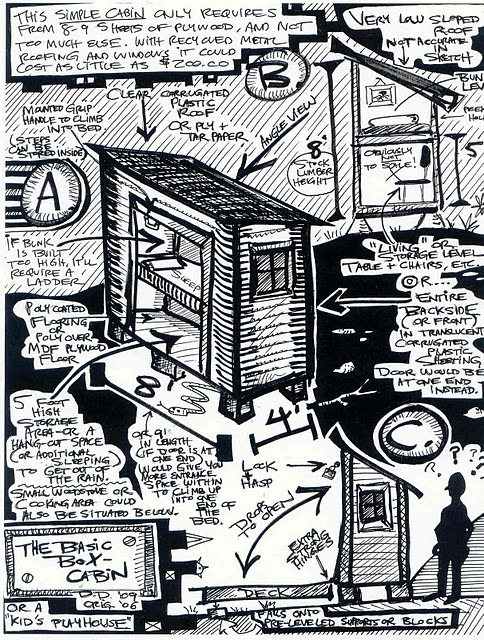 THIS SIMPLE CABIN ONLY REQUIRES
FROM 8-9 SHEETS OF PLYWOOD, AND NOT
TOO MUCH ELSE. WITH RECYCLED METAL
ROOFING AND WINDOWS IT COULD
COST AS LITTLE AS $200.00
VERY LOW SLOPED
ROOF
NOT ACCURATE
IN
SKETCH
B
MOUNTED GRIP
HANDLE TO CLIMB
INTO BED.
(STEPS
CAN BE
STORED INSIDE)
CLEAR CORRUGATED
PLASTIC
ROOF
OR PLY +
TAR PAPER
ANGLE VIEW
8'
STOCK
LUMBER
HEIGHT
OBVIOUSLY
NOT TO
SCALE!
5
A
IF BUNK
IS BUILT
TOO HIGH, IT'LL
REQUIRE A
LADDER
SLEEP
"LIVING" OR
STORAGE LEVEL
TABLE + CHAIRS, ETC.
OR...
ENTIRE
BACKSIDE
OR FRONT
IN TRANSLUCENT
CORRUGATED
PLASTIC
SHEETING,
DOOR WOULD BE
AT ONE END
INSTEAD.
POLY COATED
FLOORING
OR
POLY OVER
MDF PLYWOOD
FLOOR
8
4
5 FOOT
HIGH
STORAGE
AREA-OR A
HANG OUT SPACE
(OR ADDITIONAL
SLEEPING)
TO GET OUT OF
THE RAIN.
SMALL WOODSTOVE OR
COOKING AREA COULD
ALSO BE SITUATED BELOW.
OR 9'
IN LENGTH
(IF DOOR IS AT
ONE END)
WOULD GIVE YOU
MORE ENTRANCE
SPACE WITHIN
TO CLIMB UP
INTO ONE
END OF
THE
BED.
C.
LOCK
HASP
DROPS
TO OPEN
EXTRA
STRONG
HINGES
? ? ? ?
DECK
FALLS ONTO
PRE-LEVELED SUPPORTS OR BLOCKS
THE BASIC
BOX-
CABIN
'09
ORIG. '06
OR A
"KID'S PLAYHOUSE"